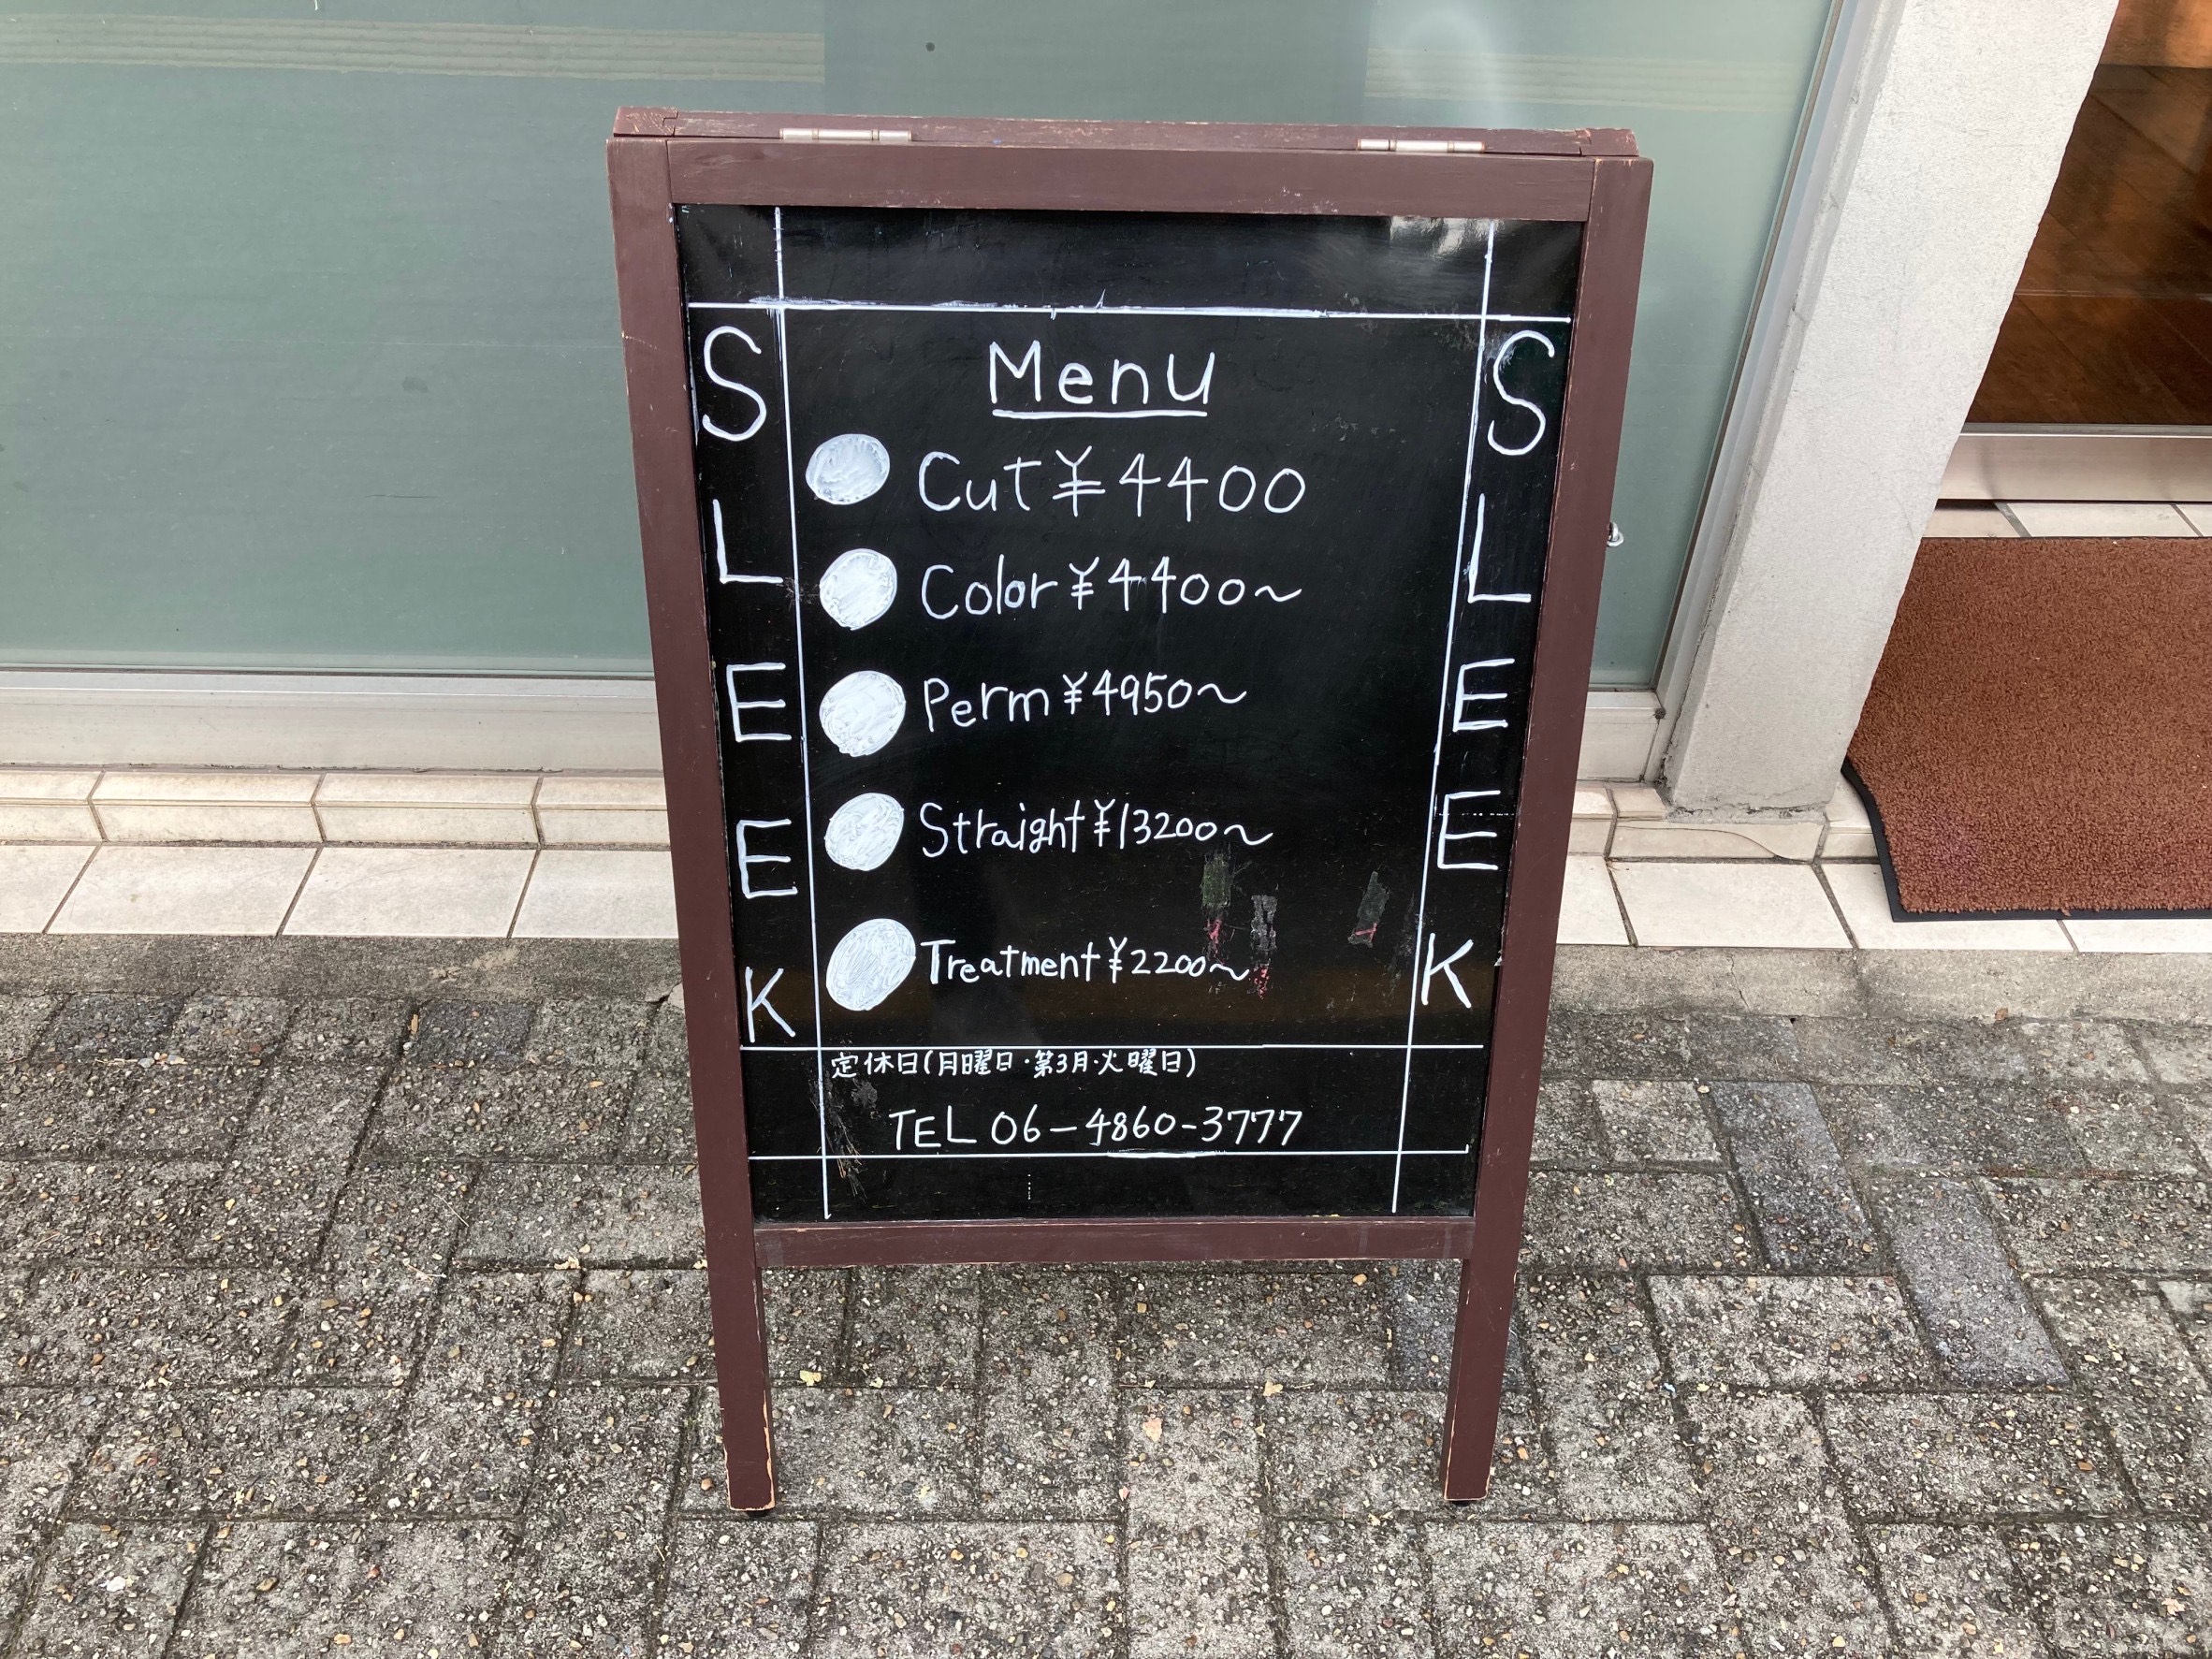 SLEEK
Menu
Cut ¥4400
Color ¥4400～
Perm ¥4950～
Straight ¥13200～
Treatment ¥2200～
SLEEK
定休日(月曜日・第3月・火曜日)
TEL 06-4860-3777